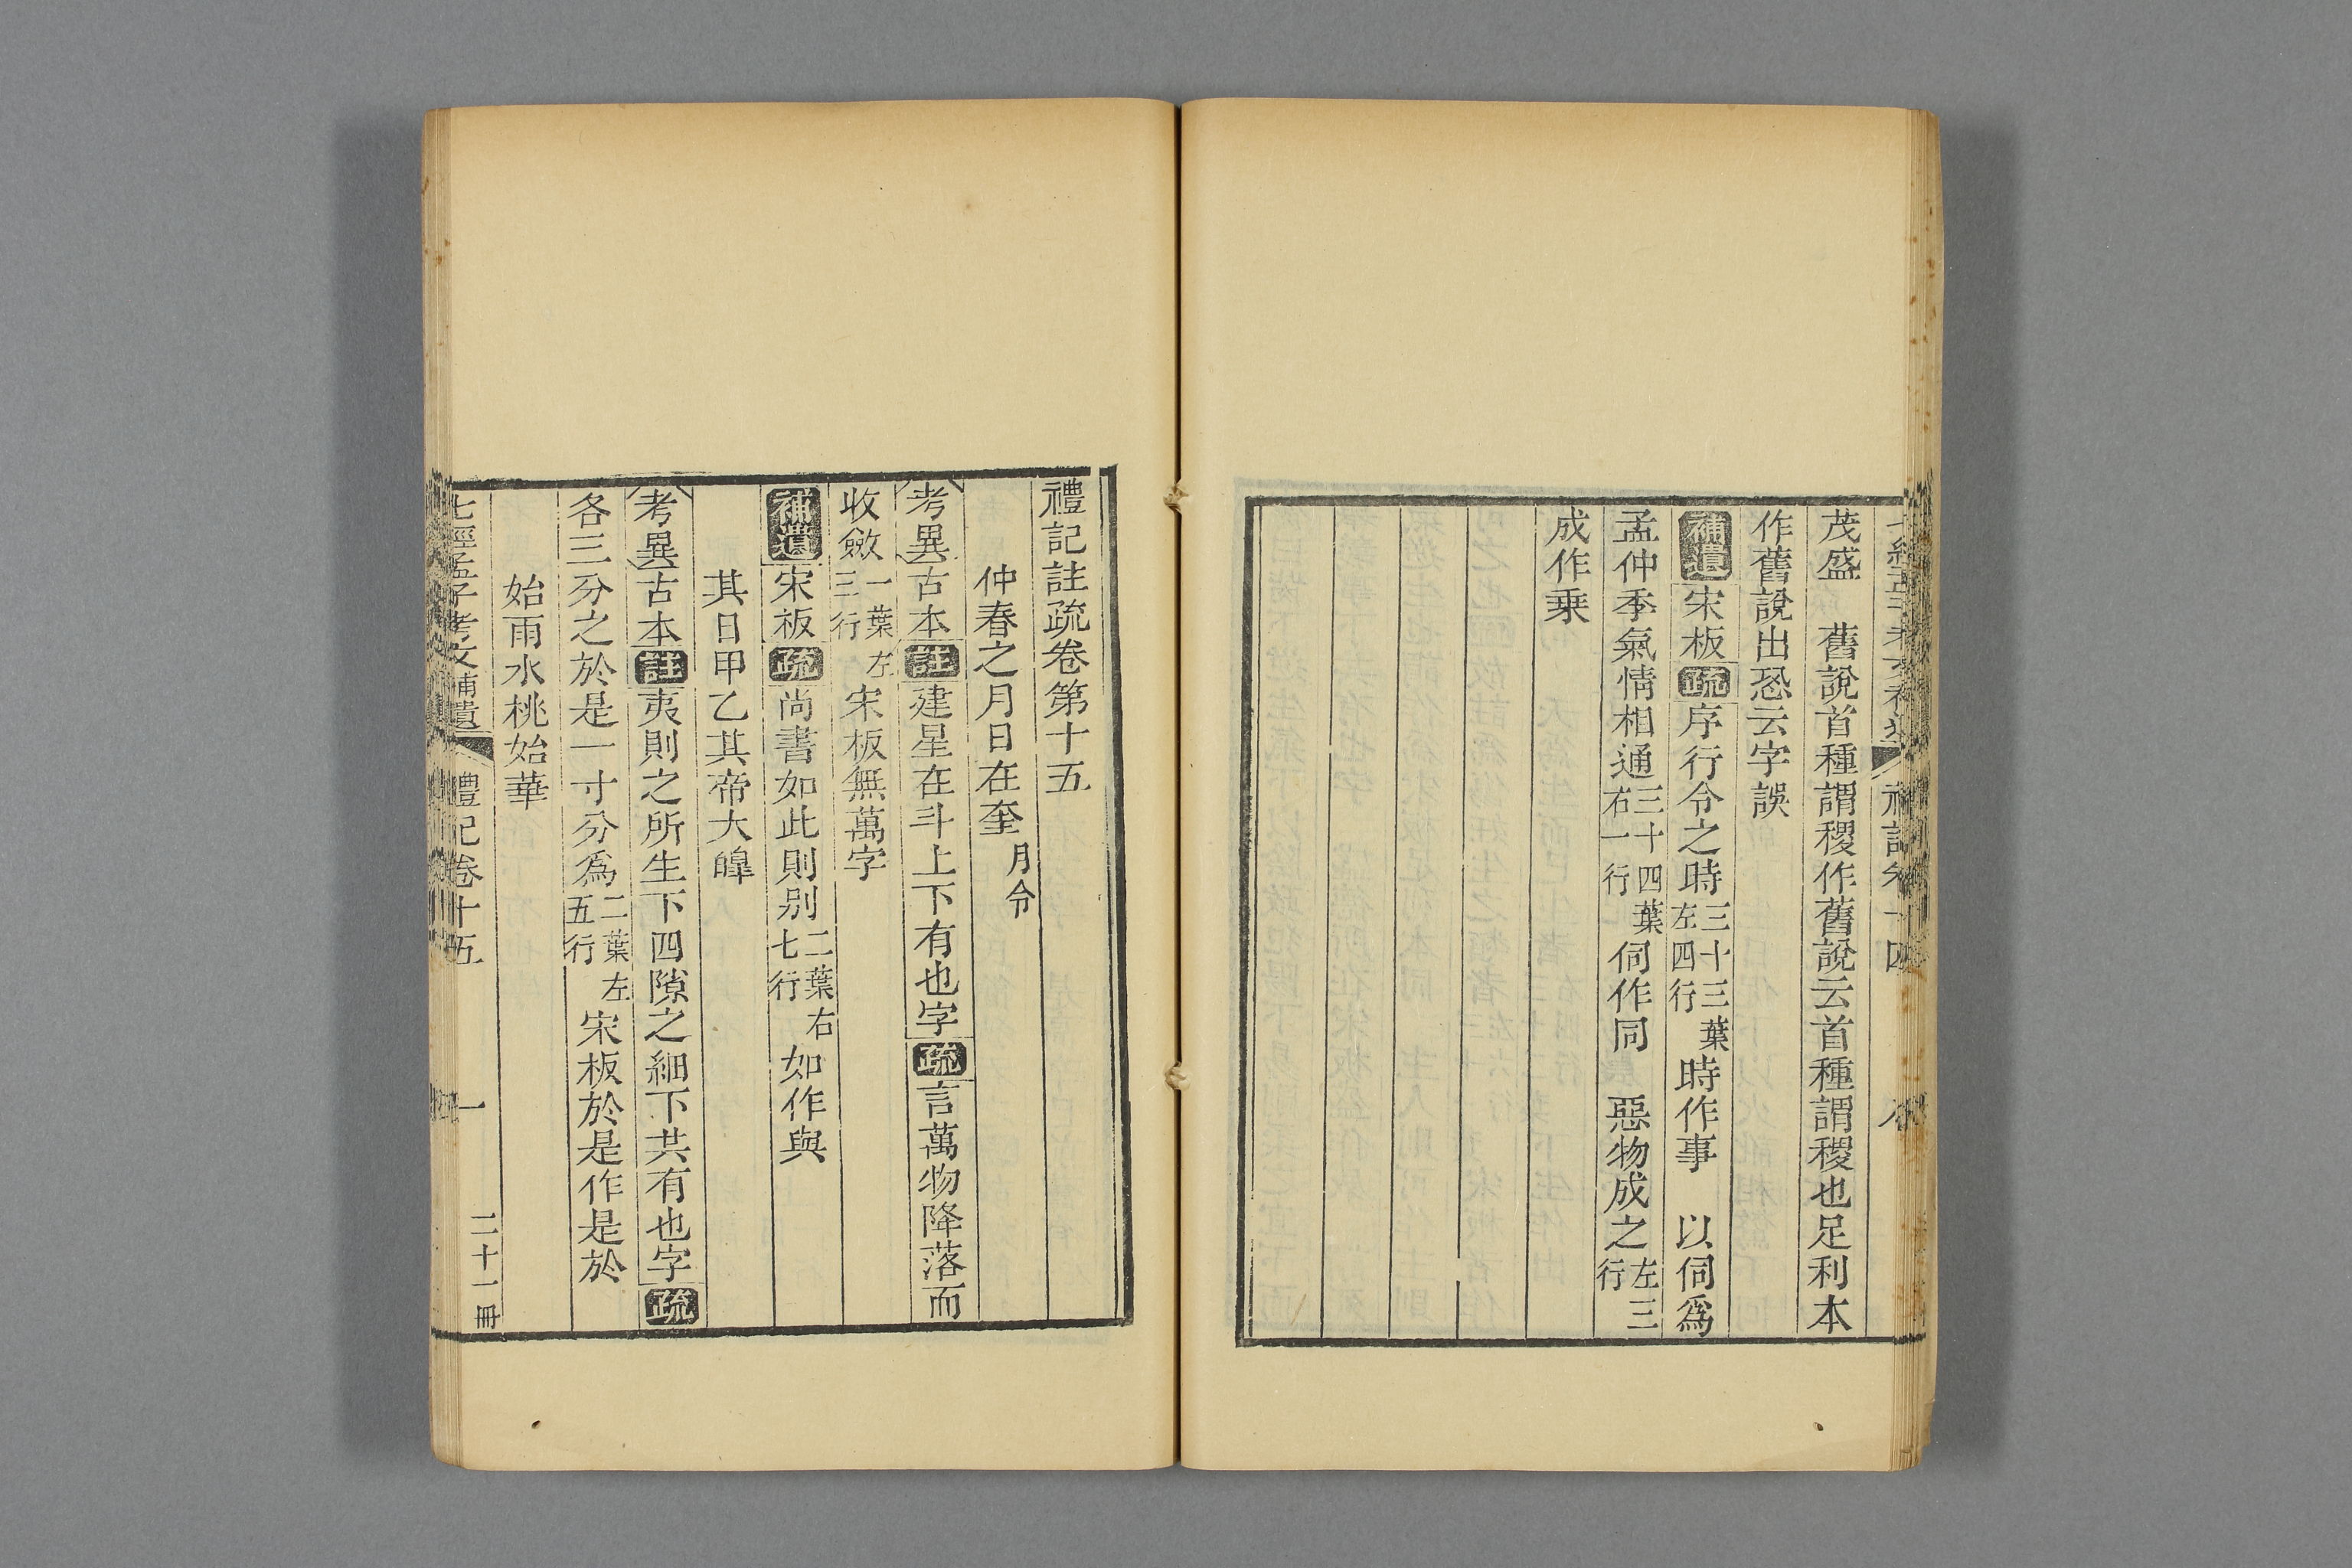 茂盛　舊說首種謂稷作舊說云首種謂稷也足利本
作舊說出恐云字誤
補遺宋板疏序行令之時三十三葉左四行時作事　以伺為
孟仲季氣情相通三十四葉右一行伺作同　惡物成之左三行
成作乗
禮記註疏卷第十五
仲春之月日在奎月令
考異古本註建星在斗上下有也字疏言萬物降落而
收斂一葉左三行宋板無萬字
補遺宋板疏尚書如此則別二葉右七行如作與
其日甲乙其帝大皥
考異古本註夷則之所生下四隙之細下共有也字疏
各三分之於是一寸分爲二葉左五行宋板於是作是於
始雨水桃始華
七經孟子考文補遺　禮記卷十五　一　二十一冊